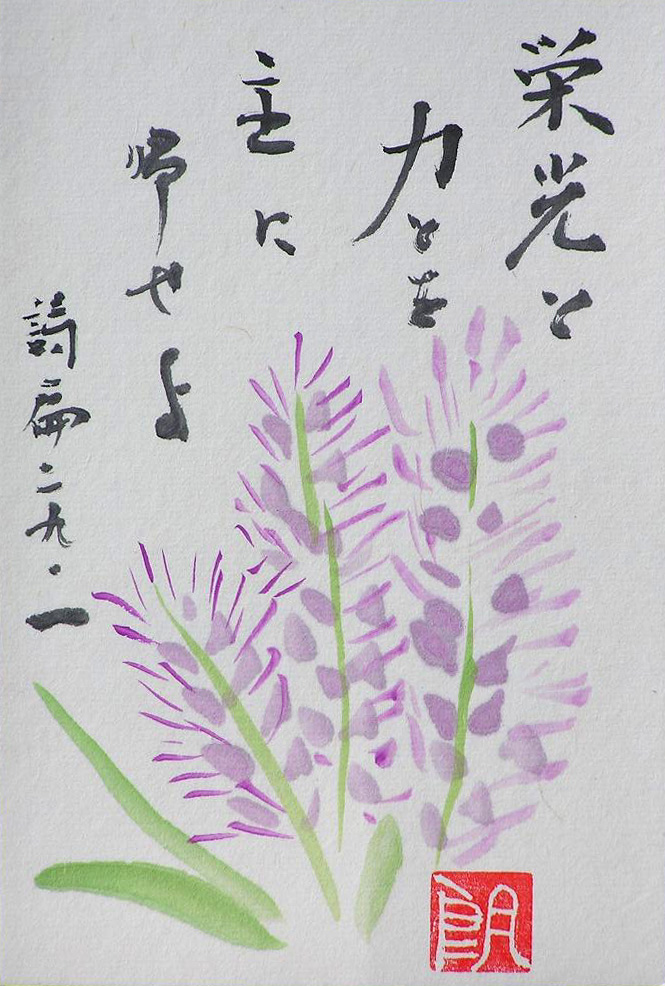 栄光と
力とを
主に
帰せよ
詩扁二九・一
朗